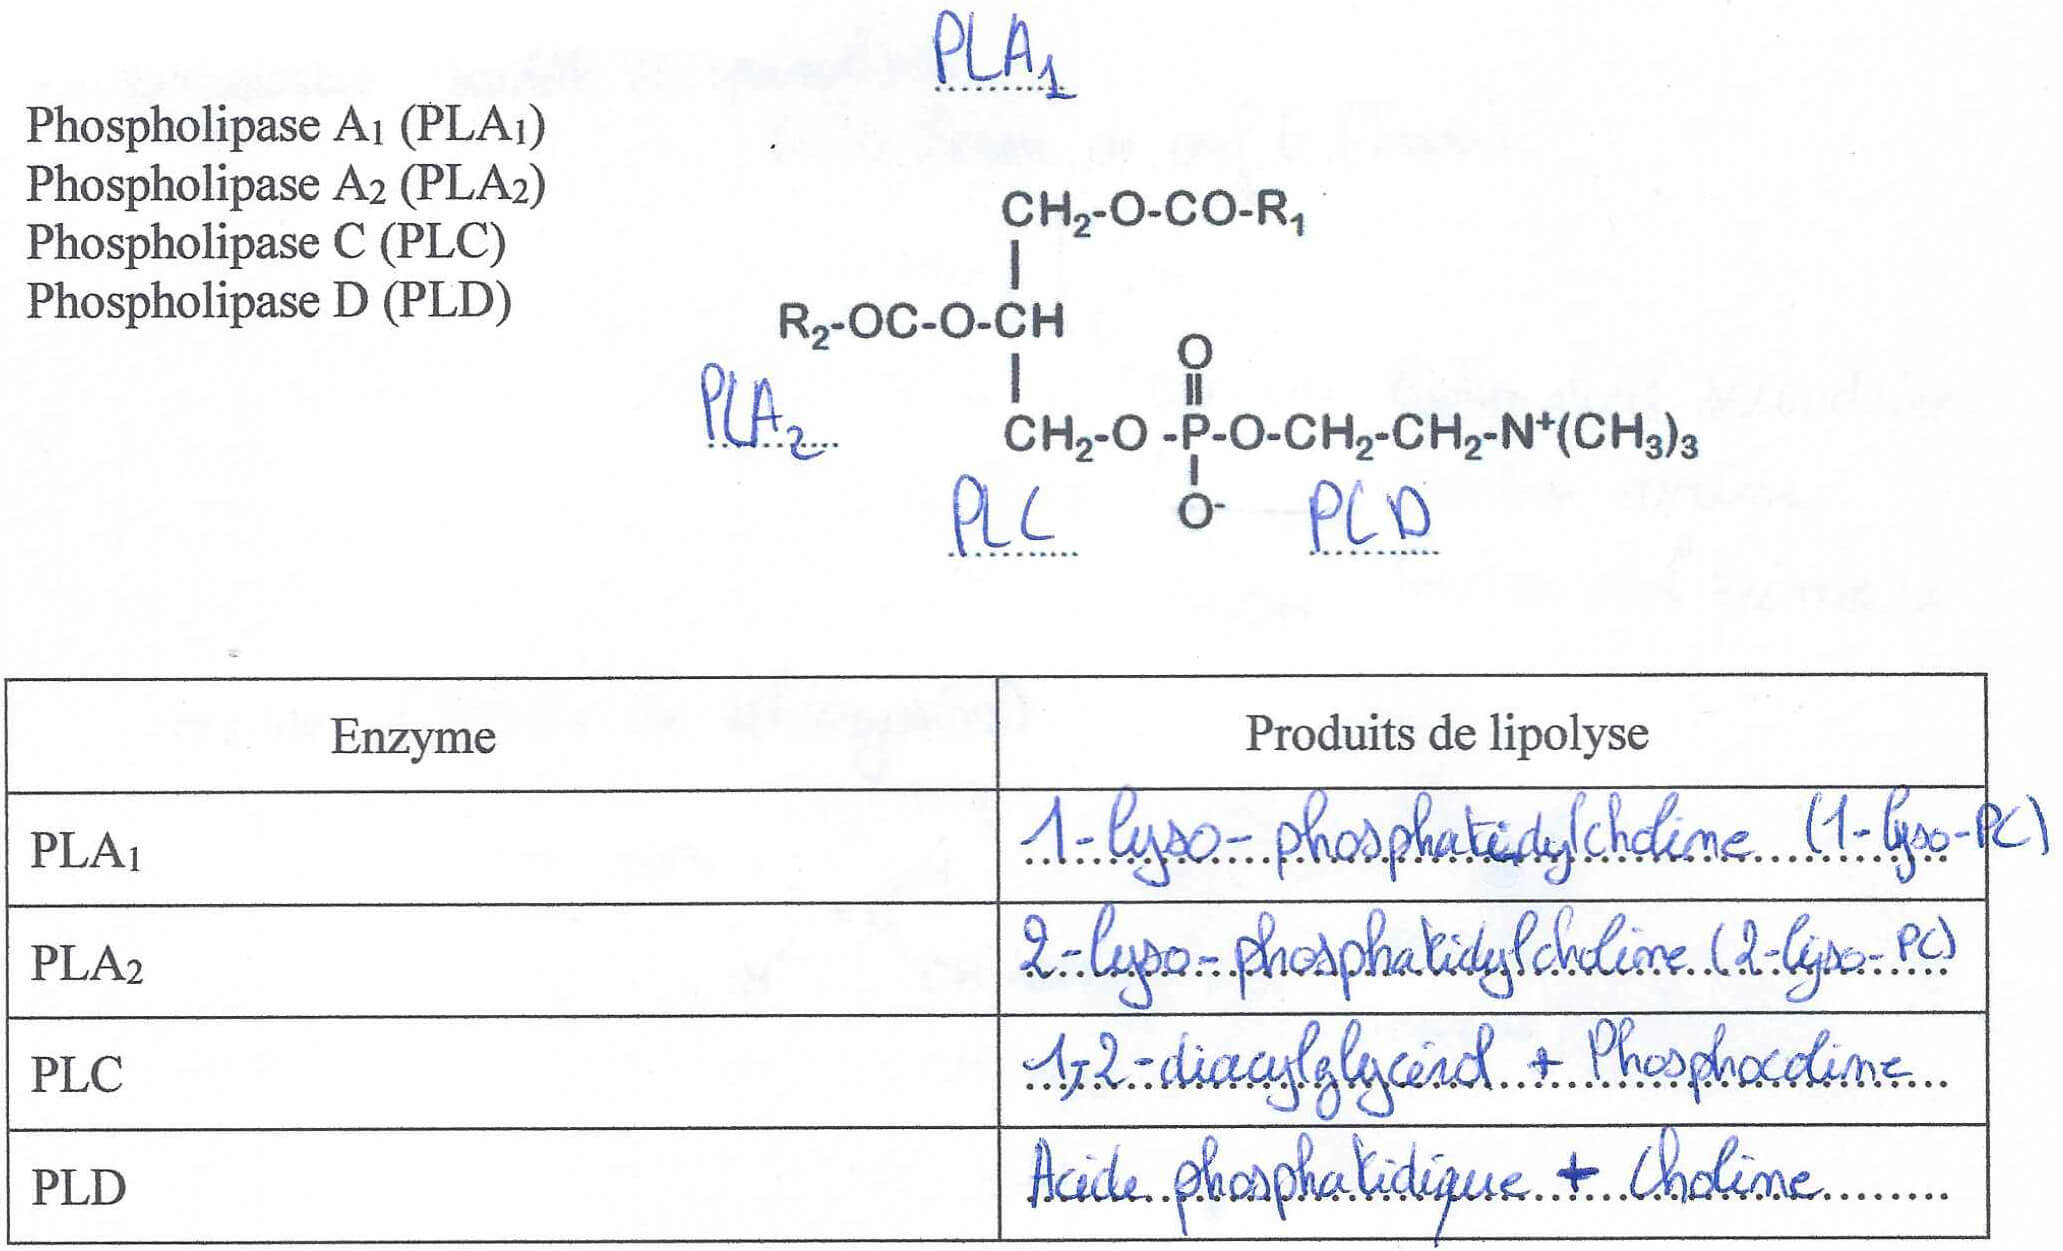 PLA₁
Phospholipase A₁ (PLA₁)
Phospholipase A₂ (PLA₂)
Phospholipase C (PLC)
Phospholipase D (PLD)
CH₂-O-CO-R₁
R₂-OC-O-CH
O
PLA₂
CH₂-O-P-O-CH₂-CH₂-N⁺(CH₃)₃
O⁻
PLC PLD
Enzyme Produits de lipolyse
PLA₁ 1-lyso-phosphatidylcholine (1-lyso-PC)
PLA₂ 2-lyso-phosphatidylcholine (2-lyso-PC)
PLC 1,2-diacylglycérol + Phosphocoline
PLD Acide phosphatidique + Choline